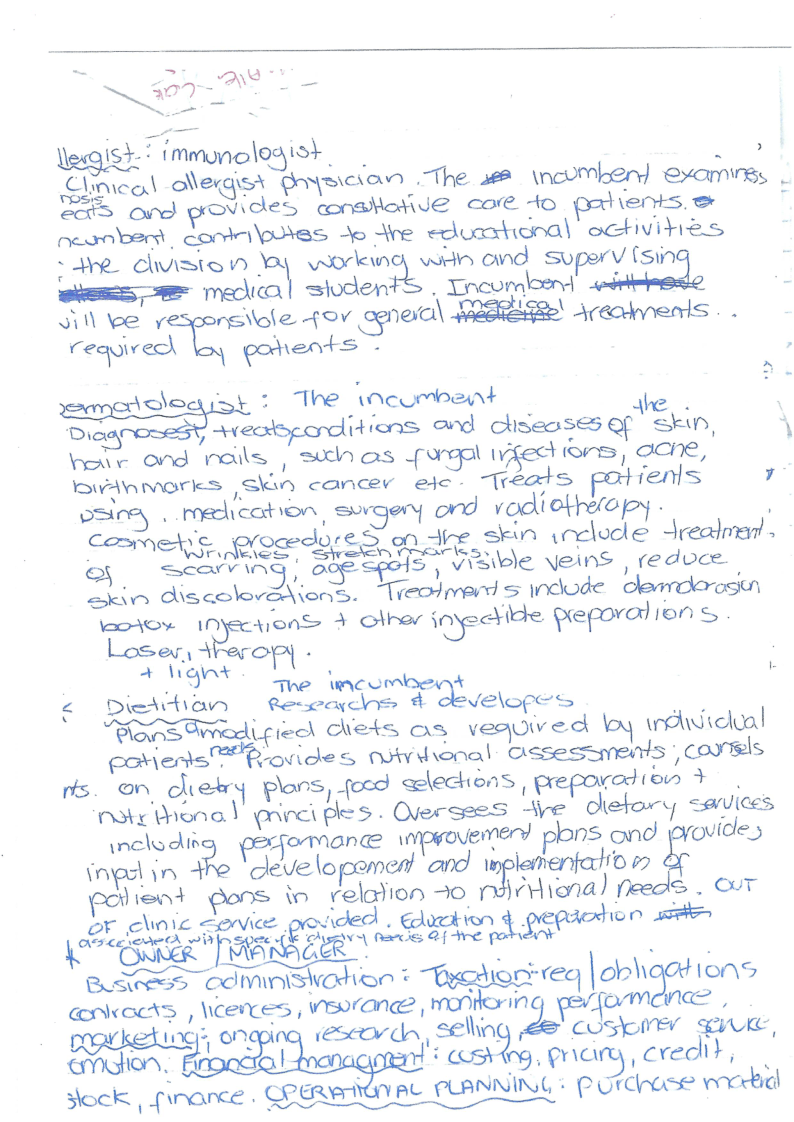 llergist : immunologist
Clinical allergist physician. The incumbent examiness
nosis
eats and provides consltative care to patients.
ncumbent contributes to the educational activities
the division by working with and supervising
medical students. Incumbent will have
will be responsible for general medicine medical treatments.
required by patients.
ermatologist : The incumbent
Diagnosest, treats conditions and diseases of the skin,
hair and nails, such as fungal infections, acne,
birthmarks, skin cancer etc. Treats patients
using medication, surgery and radiotherapy.
Cosmetic procedures on the skin include treatment
wrinkles, stretch marks,
of scarring, age spots, visible veins, reduce
skin discolorations. Treatments include dermabrasion
botox injections + other injectible preparations.
Laser, therapy.
+ light
The imcumbent
Dietitian Researchs & developes
Plans a modified diets as required by individual
patients needs. Provides nutritional assessments, counsels
nts. on dietry plans, food selections, preparation +
nutritional principles. Oversees the dietary services
including performance improvement plans and provides
input in the developement and implementation of
patient plans in relation to nutritional needs. OUT
OF clinic service provided. Education & preparation with
associeted with specific dietry needs of the patient
* OWNER / MANAGER
Business administration : Taxation-req/obligations
contracts, licences, insurance, monitoring performance,
marketing; ongoing research, selling, customer service,
omotion. Financial managment : costing, pricing, credit,
stock, finance. OPERATIONAL PLANNING : purchase material